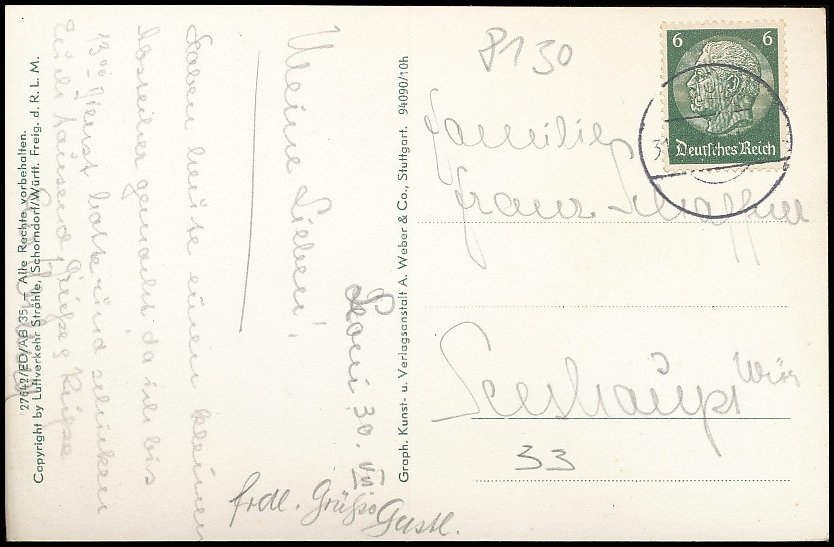 8130
6 6
Deutsches Reich
31
Familie
Franz Schaffner
Seeshaupt
33
Graph. Kunst- u. Verlagsanstalt A. Weber & Co., Stuttgart. 94090/10h
30. VII
Meine Lieben!
Haben heute einen kleinen
Abstecher gemacht da ich bis
13°° Dienst hatte und schicken
Euch tausend Grüße & Küsse
frdl. Grüße Gustl.
27642/ED/AB 35 — Alle Rechte vorbehalten.
Copyright by Luftverkehr Strähle, Schorndorf/Württ. Freig. d. R. L. M.